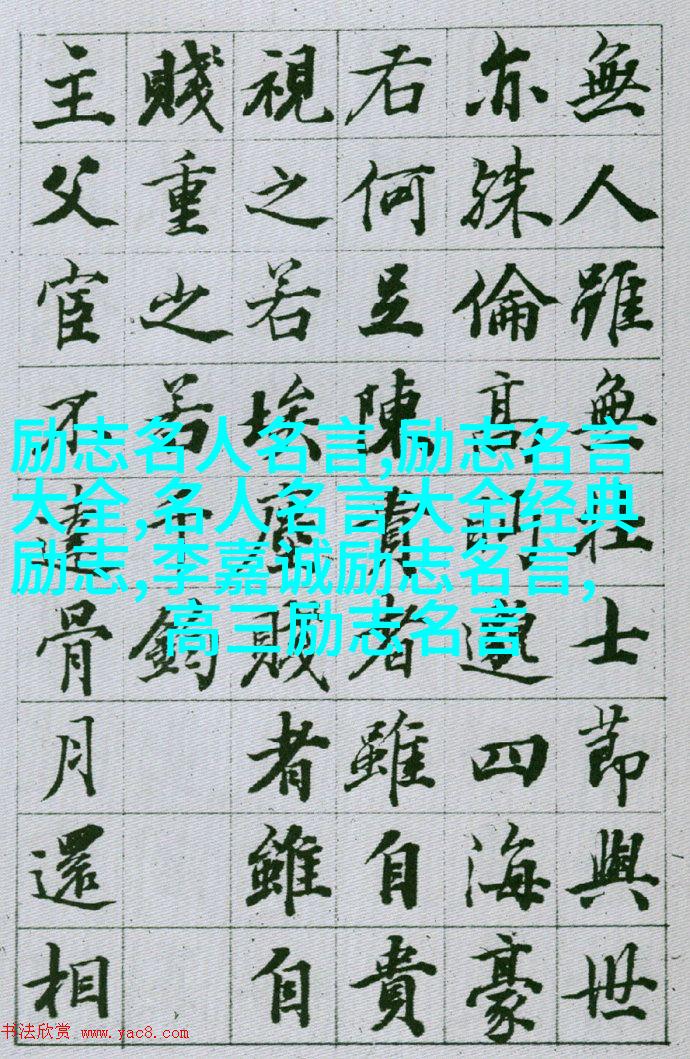 無人雖無壯士節與世
亦殊倫高邈四海豪
右何足陳貴者雖自貴
視之若埃塵賤者雖自
賤重之若千鈞
主父宦不達骨月還相
励志名人名言,励志名言
大全,名人名言大全经典
励志,李嘉诚励志名言,
高三励志名言
书法欣赏 www.yac8.com